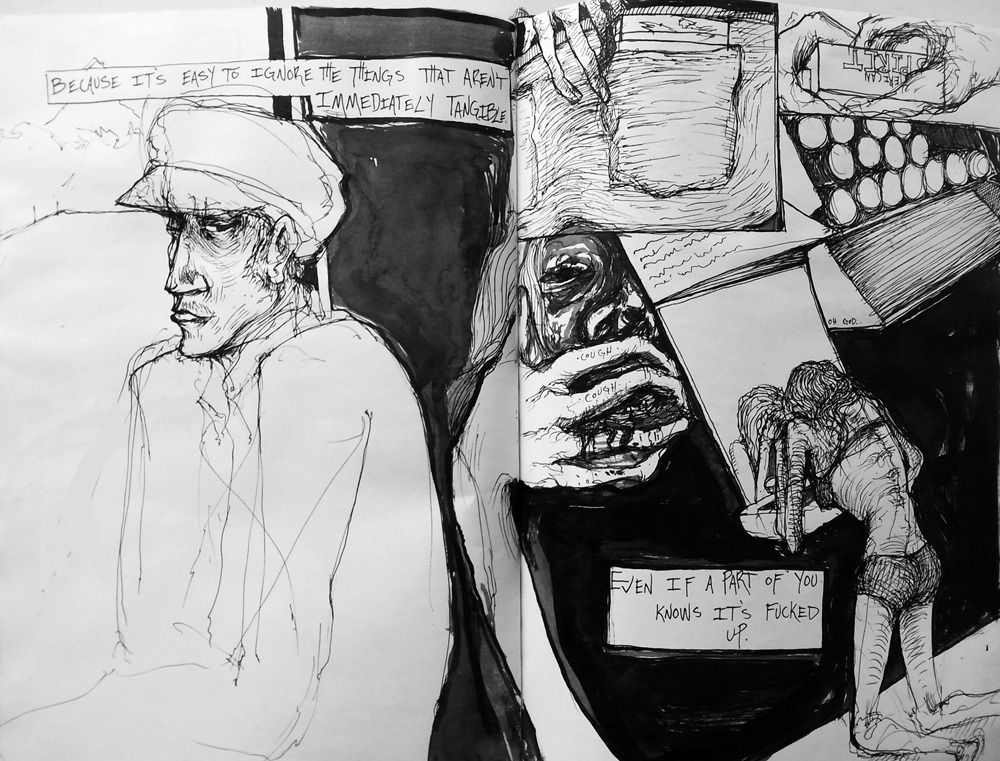 BECAUSE IT'S EASY TO IGNORE THE THINGS THAT AREN'T
IMMEDIATELY TANGIBLE.
AMERICAN
SPIRIT
OH GOD..
COUGH
COUGH
EVEN IF A PART OF YOU
KNOWS IT'S FUCKED
UP.